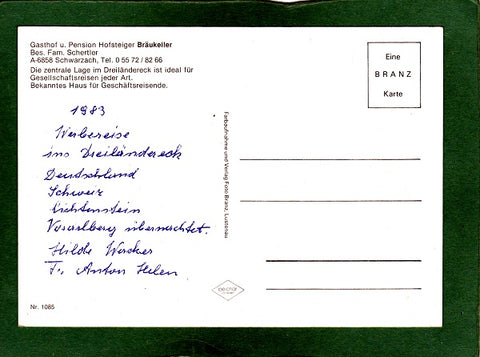 Gasthof u. Pension Hofsteiger Bräukeller
Bes. Fam. Schertler
A-6858 Schwarzach, Tel. 0 55 72 / 82 66
Die zentrale Lage im Dreiländereck ist ideal für
Gesellschaftsreisen jeder Art.
Bekanntes Haus für Geschäftsreisende.
1983
Werbereise
ins Dreiländereck
Deutschland
Schweiz
Lichtenstein
Vorarlberg übernachtet.
Hilde
Fr. Anton
Nr. 1085
Farbaufnahme und Verlag Foto Branz, Lustenau
Eine
BRANZ
Karte